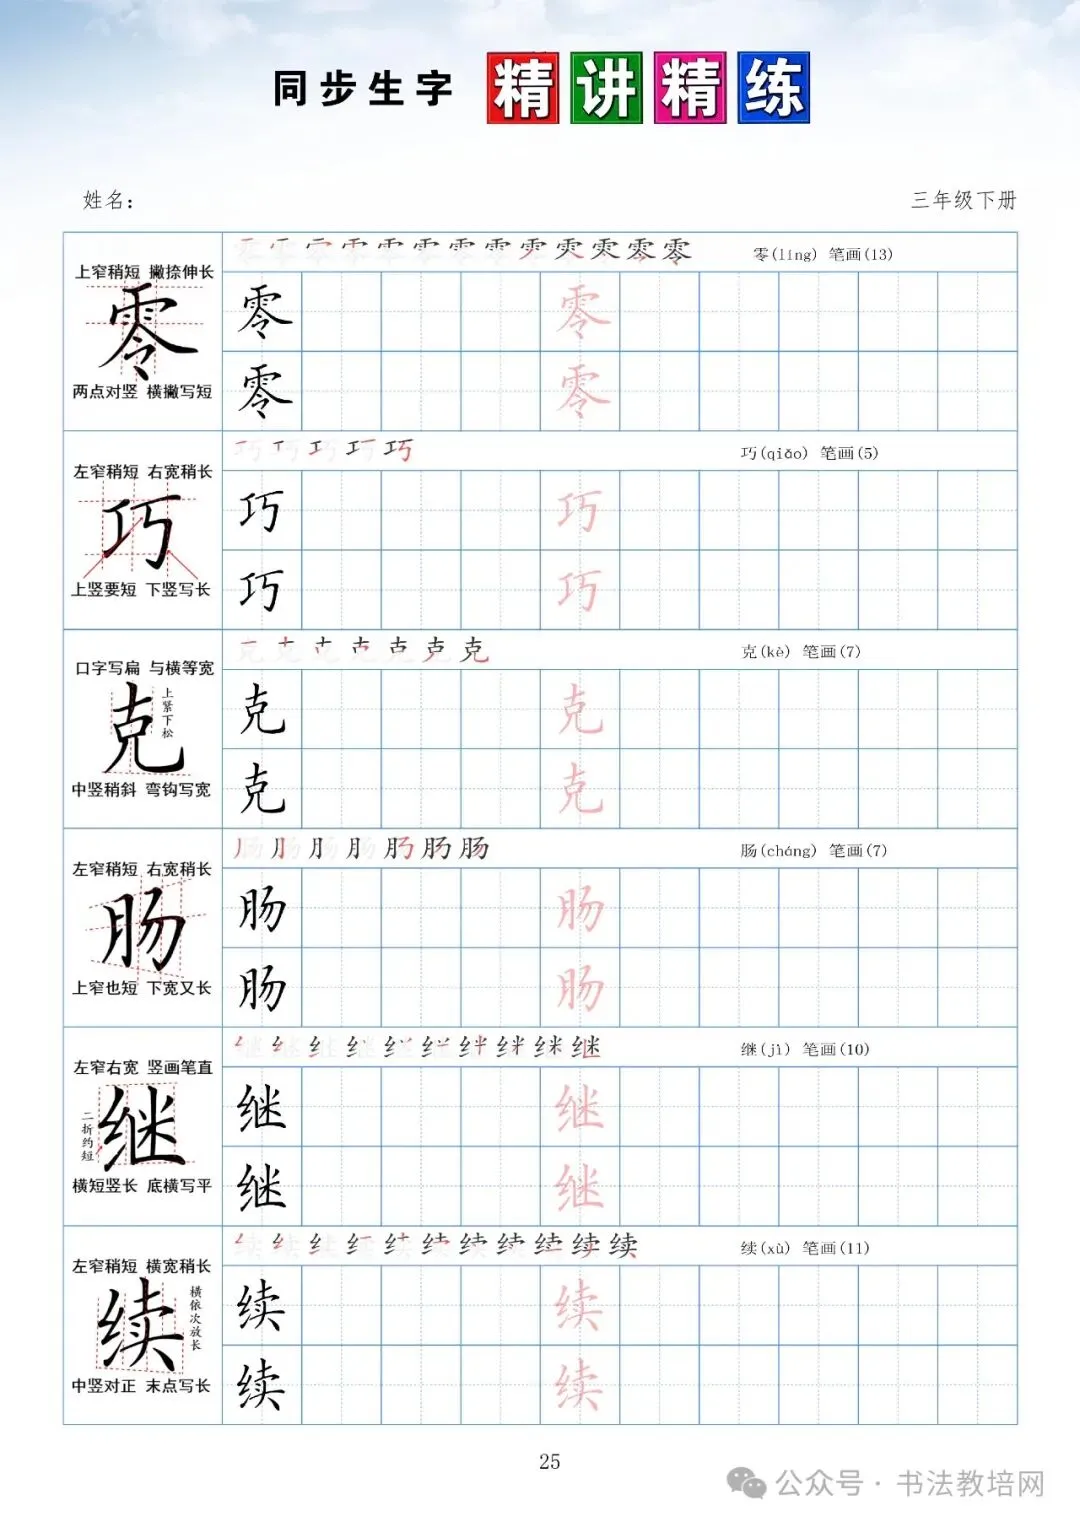 同步生字 精讲精练
姓名：
三年级下册
上窄稍短 撇捺伸长
零
两点对竖 横撇写短
零(líng) 笔画(13)
零 零
零 零
左窄稍短 右宽稍长
巧
上竖要短 下竖写长
巧(qiǎo) 笔画(5)
巧 巧
巧 巧
口字写扁 与横等宽
克
上紧下松
中竖稍斜 弯钩写宽
克(kè) 笔画(7)
克 克
克 克
左窄稍短 右宽稍长
肠
上窄也短 下宽又长
肠(cháng) 笔画(7)
肠 肠
肠 肠
左窄右宽 竖画笔直
继
二折约短
横短竖长 底横写平
继(jì) 笔画(10)
继 继
继 继
左窄稍短 横宽稍长
续
横依次放长
中竖对正 末点写长
续(xù) 笔画(11)
续 续
续 续
25
公众号·书法教培网